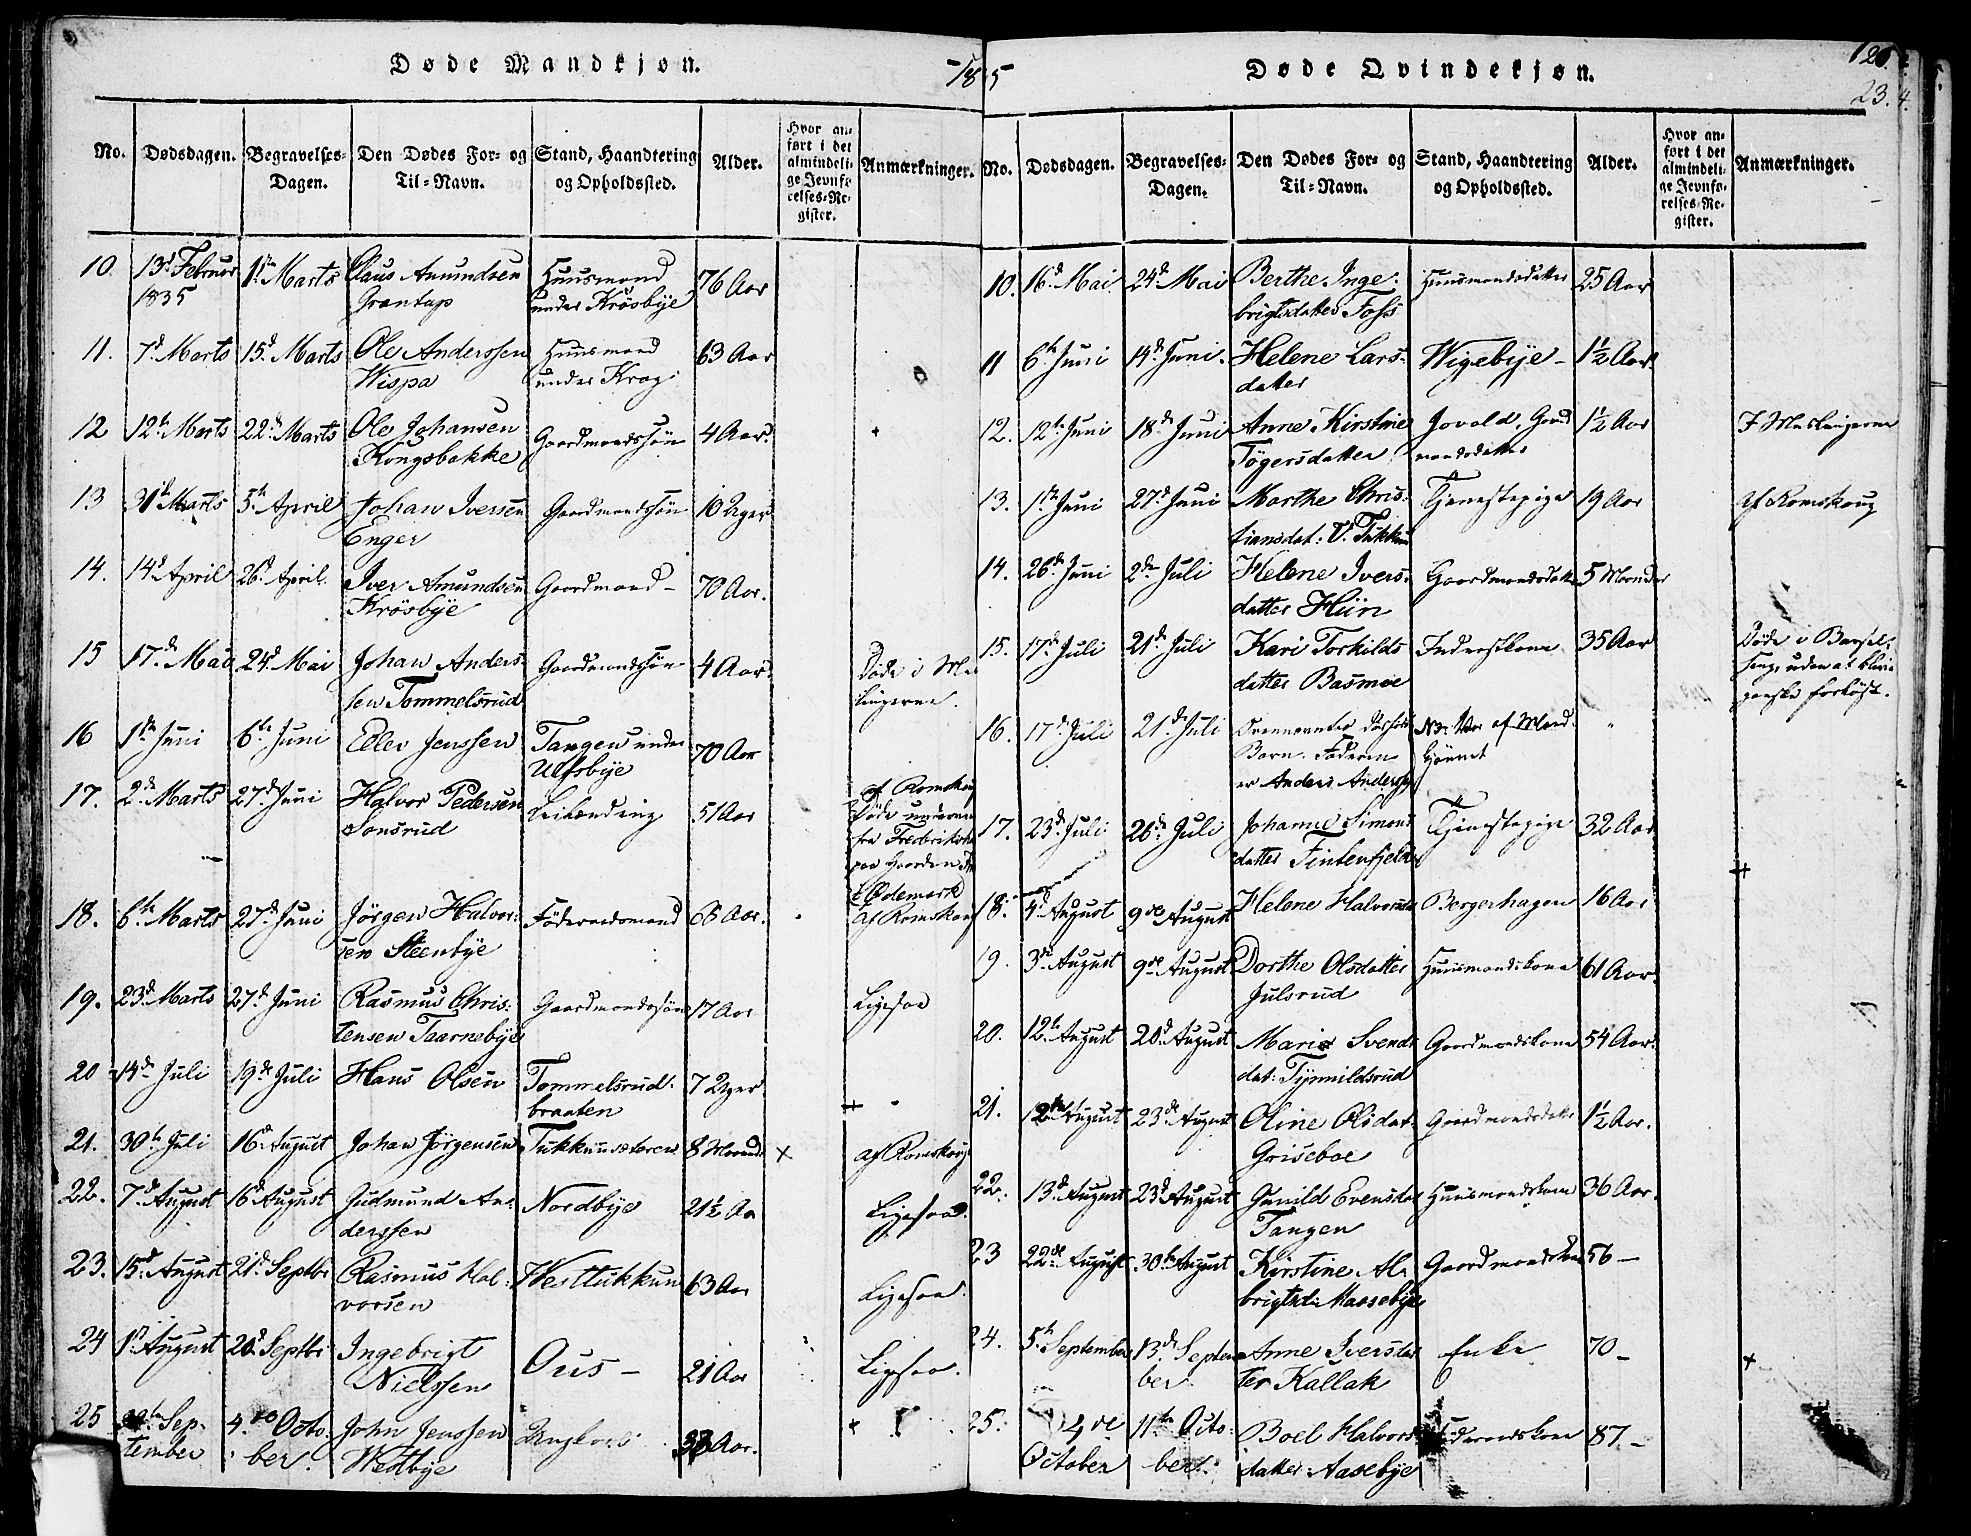 Døde Mandkjøn.
No. Dødsdagen. Begravelses-Dagen. Den Dødes For- og Til-Navn. Stand, Haandtering og Opholdssted. Alder. Hvor anført i det almindelige Jevnførelses-Register. Anmærkninger.
10. 13d Februar 1835 1ste Marts Claus Amundsen Grantap Huusmand under Krösbye 76 Aar
11. 7d Marts 15d Marts Ole Anderssen Wispa Huusmand under Krog 63 Aar
12 12te Marts 22d Marts Ole Johansen Kongsbakke Gaardmandssön 4 Aar.
13 31d Marts 5te April Johan Iversen Enger Gaardmandssön 10 Uger
14. 14d April 26d April. Iver Amundsen Krösbye Gaardmand - 70 Aar.
15 17de Mai 24d Mai Johan Anderssen Tommelsrud Gaardmandssön 4 Aar. Döde i Meslingerne.
16 1ste Juni 6te Juni Edlev Jenssen Tangen under Ulfsbye 70 Aar
17. 2de Marts 27d Juni Halvor Pedersen Sonsrud Leilænding 51 Aar af Romskoug Döde underveis fra Frederiksha paa Gaarden i Ødemark
18. 6te Marts 27d Juni Jörgen Halvorsen Steenbye Föderaadsmand 68 Aar. Af Romskoug
19. 23d Marts 27d Juni Rasmus Christensen Taarnebye Gaardmandssön 17 Aar Ligesaa
20 14de Juli 19de Juli Hans Olsen Tommelsrudbraaten 7 Uger
21. 30te Juli 16d August Johan Jörgensen Tukkunsæteren 8 Maaned. × af Romskoug
22. 7d August 16d August Gudmund Anderssen Nordbye 21½ Aar Ligesaa.
23. 15d August 21d Septbr Rasmus Halvorsen Westtukkun 63 Aar Ligesaa.
24 1st August 20d Septbr Ingebrigt Nielssen Ous - 21 Aar Ligesaa.
25 September 4de October. John Jenssen Wedbye Ungkarl Aar.
1835
Døde Qvindekjøn.
120.
23.4.
No. Dødsdagen. Begravelses-Dagen. Den Dødes For- og Til-Navn. Stand, Haandtering og Opholdssted. Alder. Hvor anført i det almindelige Jevnførelses-Register. Anmærkninger.
10. 16d Mai 24d Mai Berthe Ingebrigtsdatter Foss Huusmandsdatter 25 Aar
11 6te Juni 14d Juni. Helene Larsdatter Wigebye - 1½ Aar.
12. 12te Juni 18d Juni Anne Kirstine Tögersdatter Jovald, Gaardmandsdatter 1½ Aar I Meslingerne
13. 1ste Juni 27d Juni Marthe Christiansdat: V. Tukkun Tjenestepige 19 Aar Af Romskoug
14. 26de Juni 2den Juli Helene Iversdatter Hiin Gaardmandsdatter 5 Maaneder
15. 17d Juli 21de Juli Kari Torkildsdatter Basmoe Inderstkone 35 Aar Döde i Barselseng, uden at blive ganske forlöst.
16. 17d Juli 21de Juli Ovennævntes dödfödte Barn. Faderen er Anders Anderssen NB: Var af Mandkjönnet "
17. 23d Juli 26de Juli Johanne Simonsdatter Finkenfjeld Tjenestepige 32 Aar
18. 4d August 9de August Helene Halvorsdatter Bergerhagen 16 Aar
19. 3de August 9de August Dorthe Olsdatter Julsrud Huusmandskone 61 Aar.
20. 12te August 20d August Marie Svendsdat: Tynnildsrud Gaardmandskone 54 Aar.
21. 12te August 23de August Oline Olsdat: Griseboe Gaardmandsdatter 1½ Aar.
22. 13d August 23d August Gunild Evensdat Tangen Huusmandskone 36 Aar.
23 22de August 30te August Kirstine Albrigtsd: Haasebye Gaardmandskone 56 -
24. 5te September 13de September Anne Iversdatter Kallak Enke 70 -
25. 4de October 11te October Boel Halvorsdatter Aasebye Föderaadskone 87 -